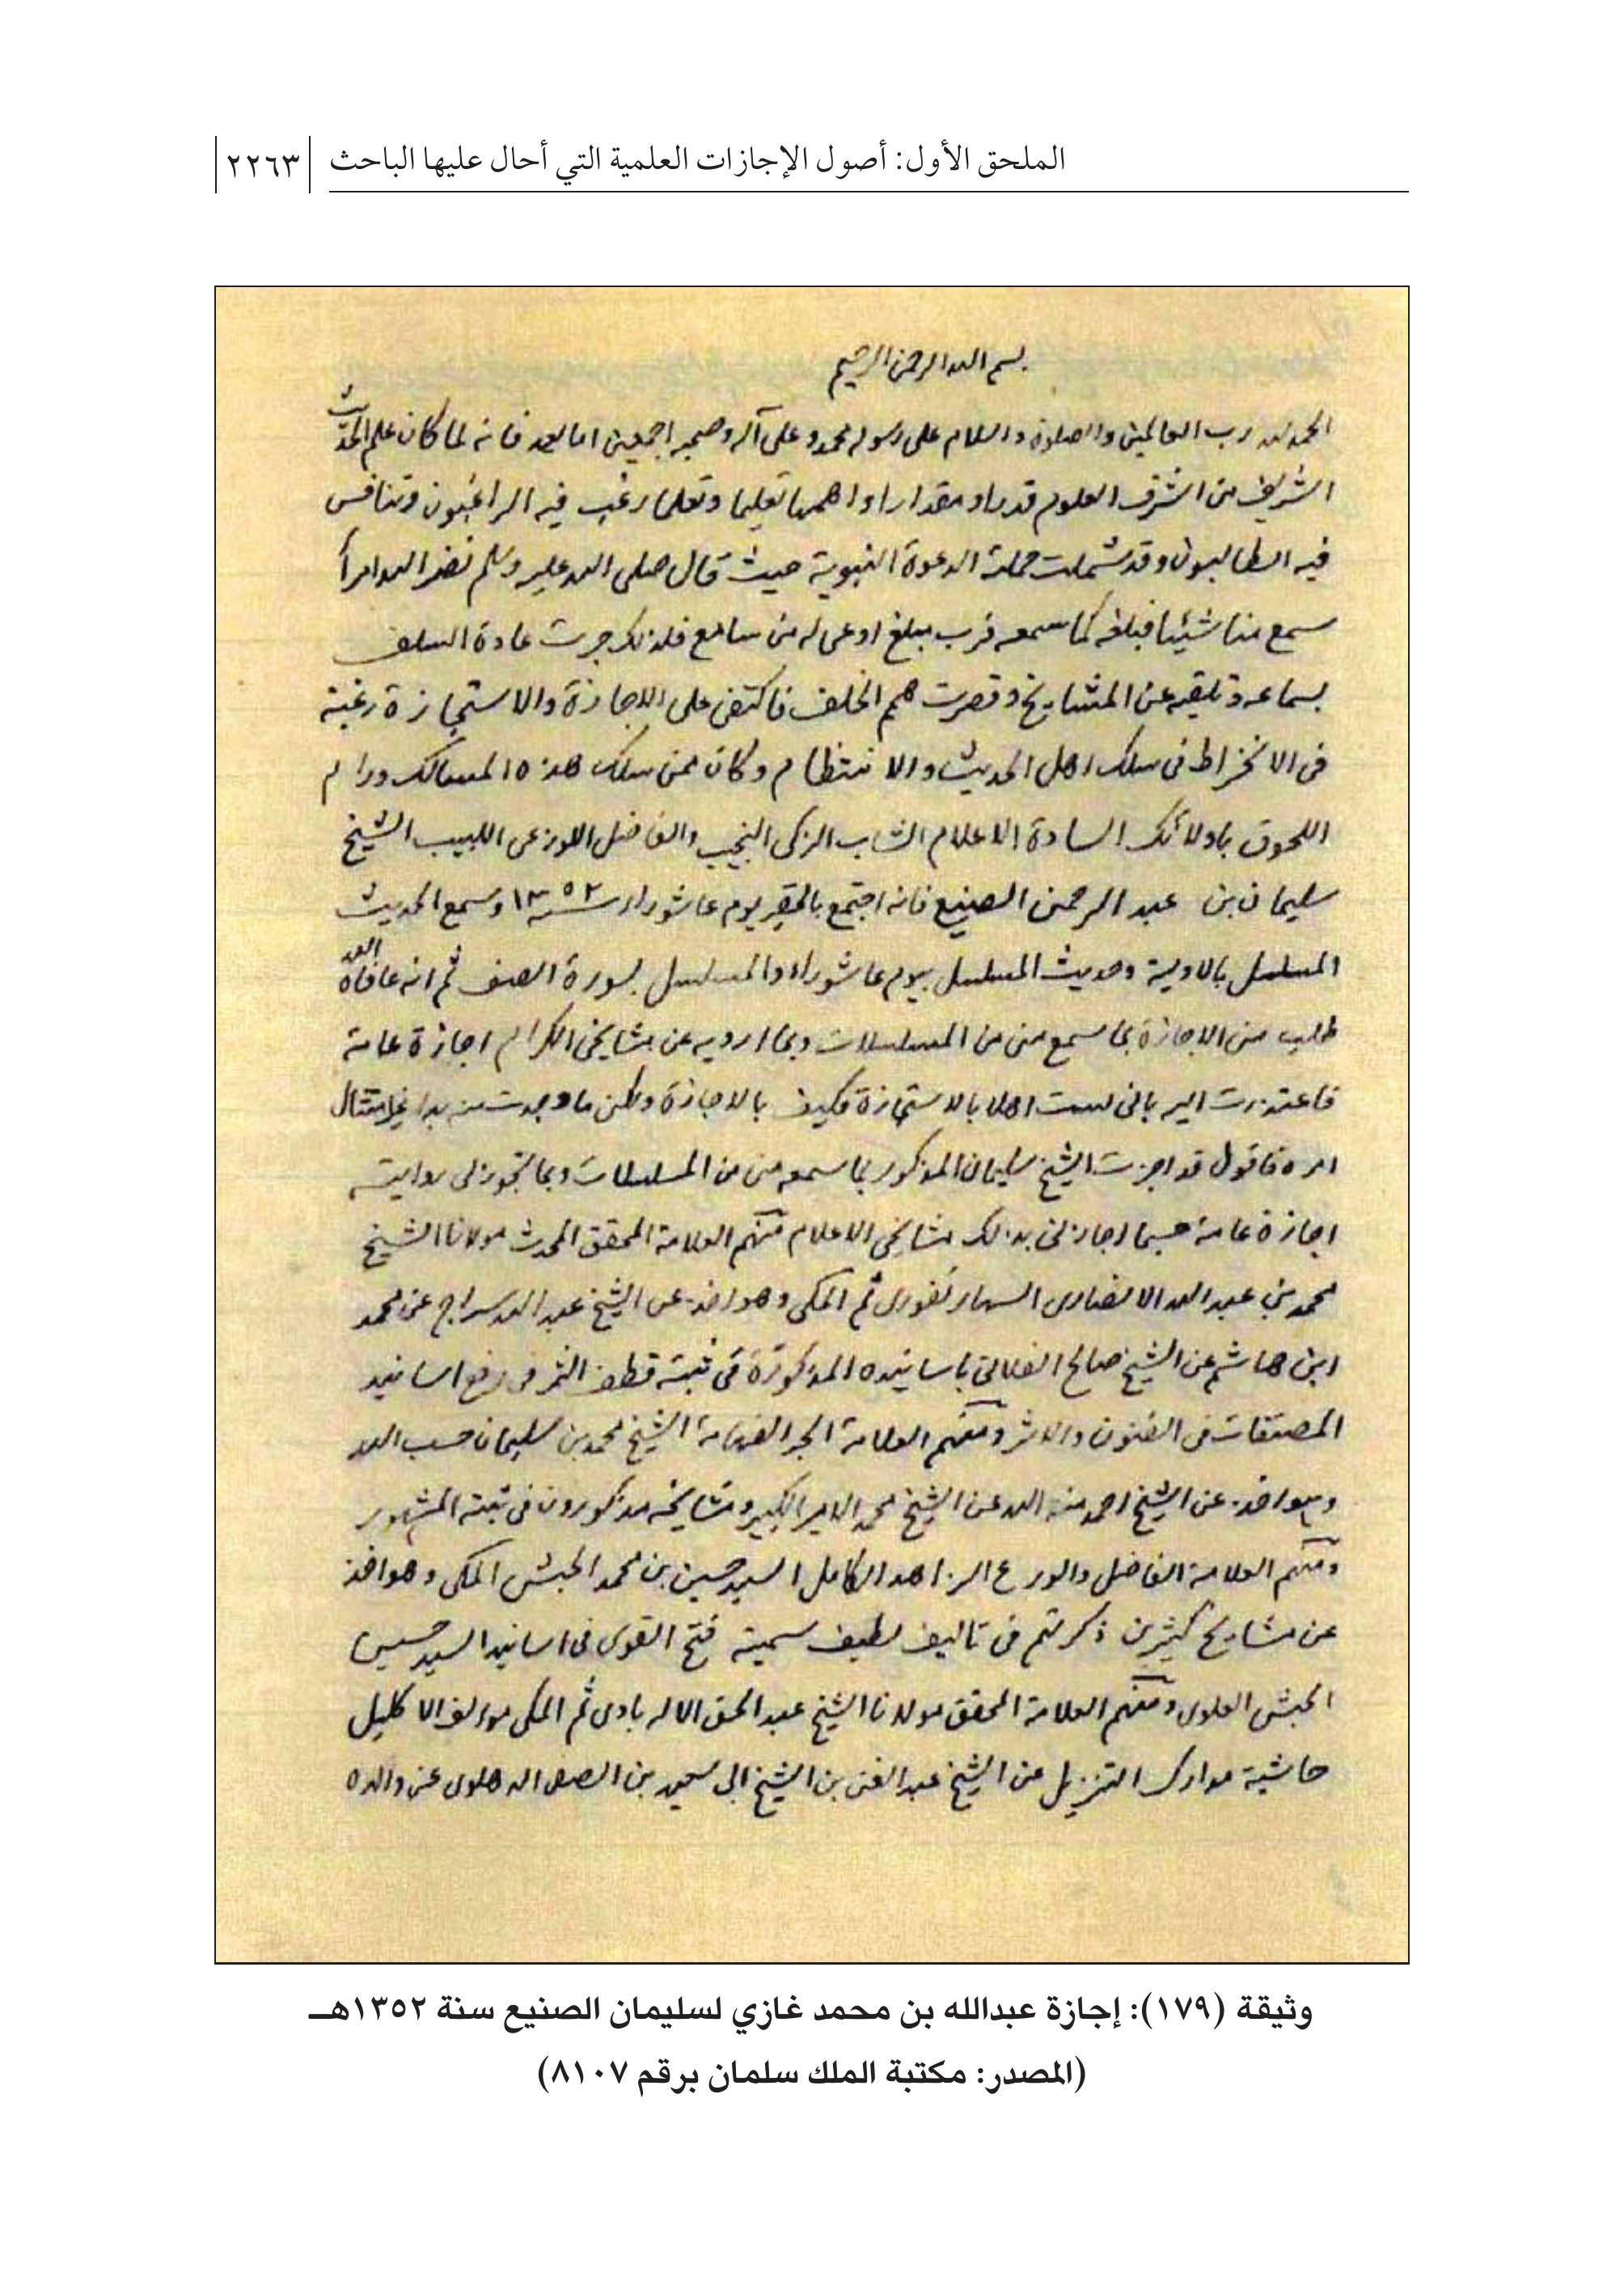 الملحق الأول: أصول الإجازات العلمية التي أحال عليها الباحث ٢٢٦٣
بسم الله الرحمن الرحيم
الحمد لله رب العالمين والصلوة والسلام على رسوله محمد وعلى آله وصحبه اجمعين اما بعد فانه لما كان علم الحديث
الشريف من اشرف العلوم قدرا ومقدارا واهمها تعليما وتعلما رغب فيه الراغبون وتنافس
فيه الطالبون وقد شملت حملته الدعوة النبوية حيث قال صلى الله عليه وسلم نضر الله امرأ
سمع منا شيئا فبلغه كما سمعه فرب مبلغ اوعى له من سامع فلذلك جرت عادة السلف
بسماعه وتلقيه عن المشايخ وقصرت همم الخلف فاكتفى على الاجازة والاستجازة رغبة
في الانخراط في سلك اهل الحديث والانتظام وكان ممن سلك هذه المسالك ورام
اللحوق باولائك السادة الاعلام الشاب الزكى النجيب والفاضل اللوزعى اللبيب الشيخ
سليمان بن عبد الرحمن الصنيع فانه اجتمع بالحقير يوم عاشوراء سنه ١٣٥٢ وسمع الحديث
المسلسل بالاولية وحديث المسلسل بيوم عاشوراء والمسلسل بسورة الصف ثم انه عافاه الله
طلب منى الاجازة بما سمع منى من المسلسلات وبما ارويه عن مشايخى الكرام اجازة عامة
فاعتذرت اليه بانى لست اهلا بالاستجازة فكيف بالاجازة ولكن ما وجدت منه بدا غير امتثال
امره فاقول قد اجزت الشيخ سليمان المذكور بما سمعه منى من المسلسلات وبما تجوز لى روايته
اجازة عامة حسبما اجازنى بذلك مشايخى الاعلام منهم العلامة المحقق المحدث مولانا الشيخ
محمد بن عبد الله الانصارى السهارنفورى ثم المكى وهو اخذ عن الشيخ عبد الله سراج عن محمد
ابن هاشم عن الشيخ صالح الفلانى باسانيده المذكورة فى ثبته قطف الثمر فى رفع اسانيد
المصنفات فى الفنون والاثر ومنهم العلامة الحبر الفهامة الشيخ محمد بن سليمان حسب الله
وهو اخذ عن الشيخ احمد منة الله عن الشيخ محمد الامير الكبير ومشايخه مذكورون فى ثبته المشهور
ومنهم العلامة الفاضل والورع الزاهد الكامل السيد حسين بن محمد الحبشى المكى وهو اخذ
عن مشايخ كثيرين ذكرتهم فى تاليف لطيف سميته فتح القوى فى اسانيد السيد حسين
الحبشى العلوى ومنهم العلامة المحقق مولانا الشيخ عبد الحق الاله بادى ثم المكى مؤلف الاكليل
حاشية مدارك التنزيل عن الشيخ عبد الغنى بن الشيخ ابى سعيد بن الصفى الدهلوى عن والده
وثيقة (١٧٩): إجازة عبدالله بن محمد غازي لسليمان الصنيع سنة ١٣٥٢هـ
(المصدر: مكتبة الملك سلمان برقم ٨١٠٧)